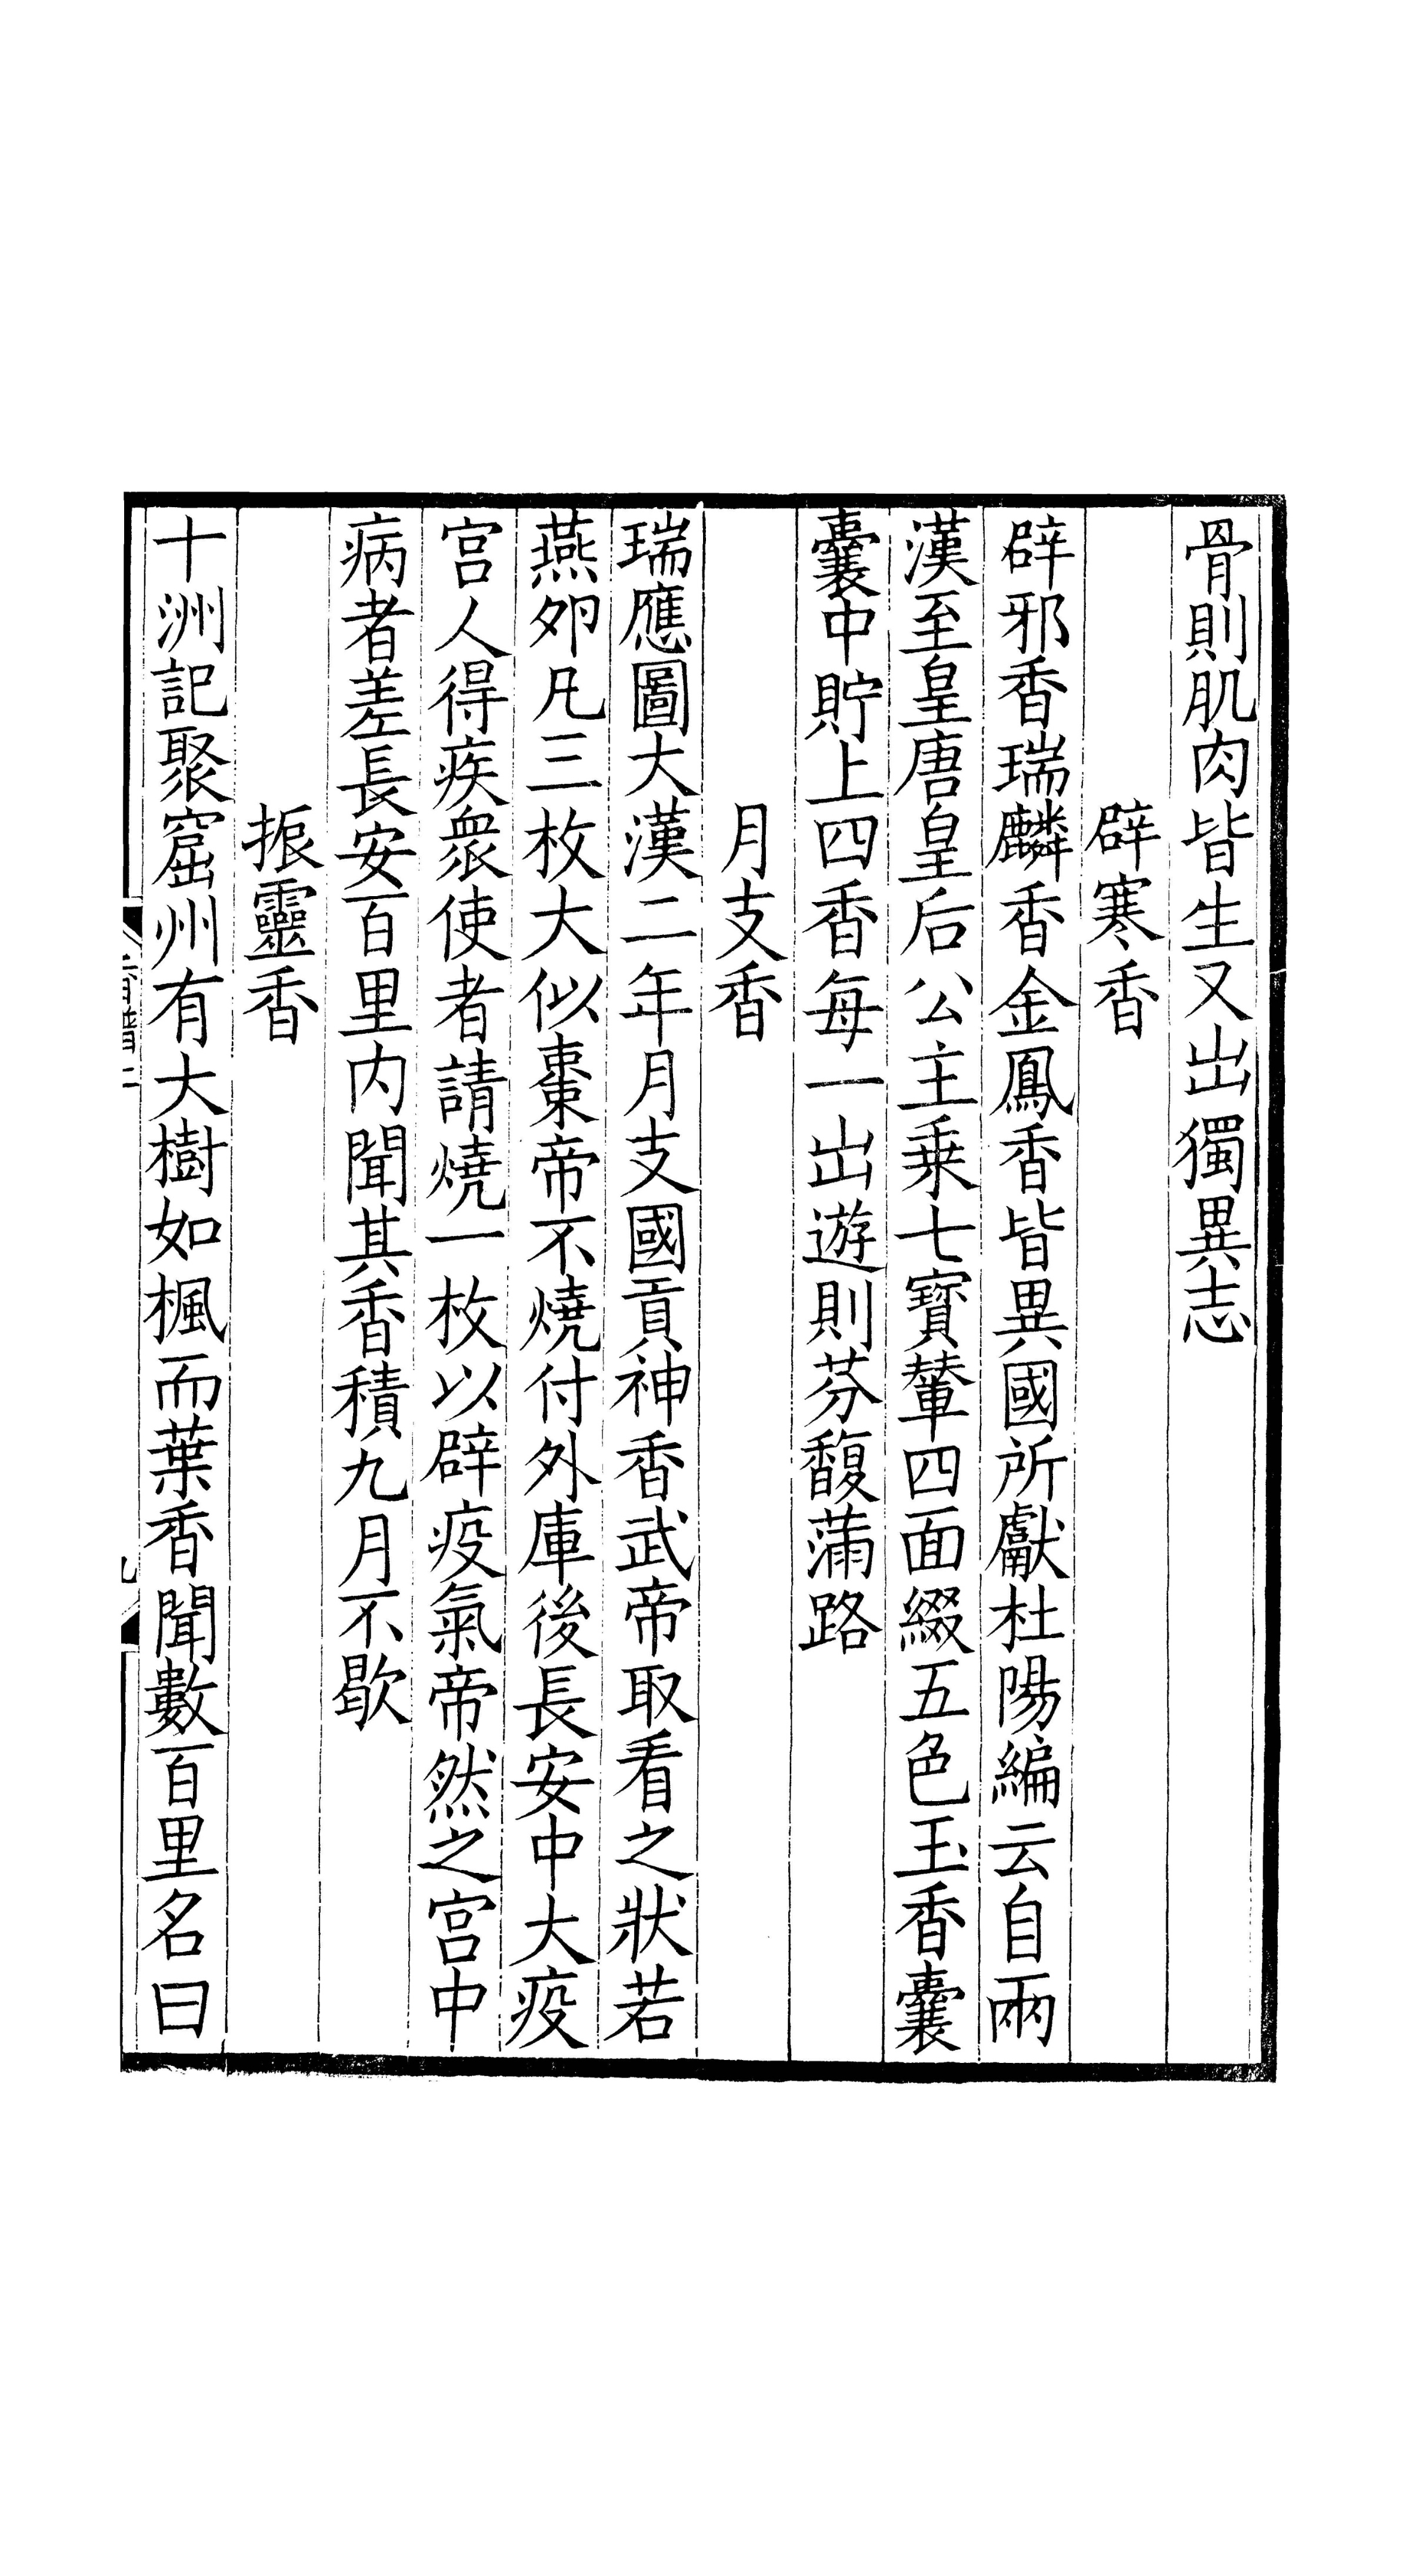 骨則肌肉皆生又出獨異志
辟寒香
辟邪香瑞麟香金鳳香皆異國所獻杜陽編云自兩
漢至皇唐皇后公主乗七寳輦四面綴五色玉香囊
囊中貯上四香每一出遊則芬馥滿路
月支香
瑞應圖大漢二年月支國貢神香武帝取看之狀若
燕夘凡三枚大似棗帝不燒付外庫後長安中大疫
宫人得疾衆使者請燒一枚以辟疫氣帝然之宫中
病者差長安百里内聞其香積九月不歇
振靈香
十洲記聚窟州有大樹如楓而葉香聞數百里名曰
香譜上